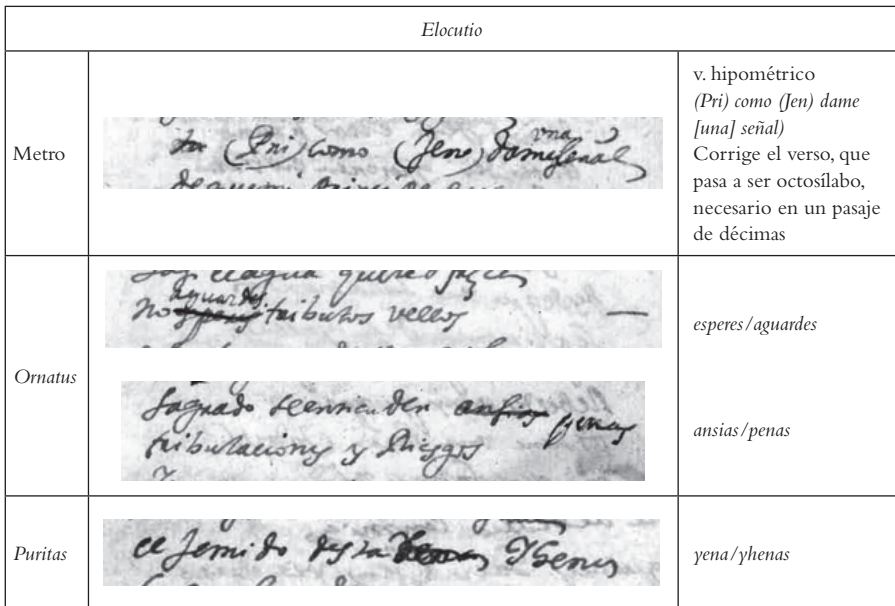 Elocutio
Metro
ta (Pri) como (Jen) dame una señal
v. hipométrico
(Pri) como (Jen) dame
[una] señal)
Corrige el verso, que
pasa a ser octosílabo,
necesario en un pasaje
de décimas
Ornatus
aguardes
no esperes tributos vellos
esperes/aguardes
sagrado ansias penas
tribulaciones y Riesgos
ansias/penas
Puritas
el Jemido desta
yena/yhenas